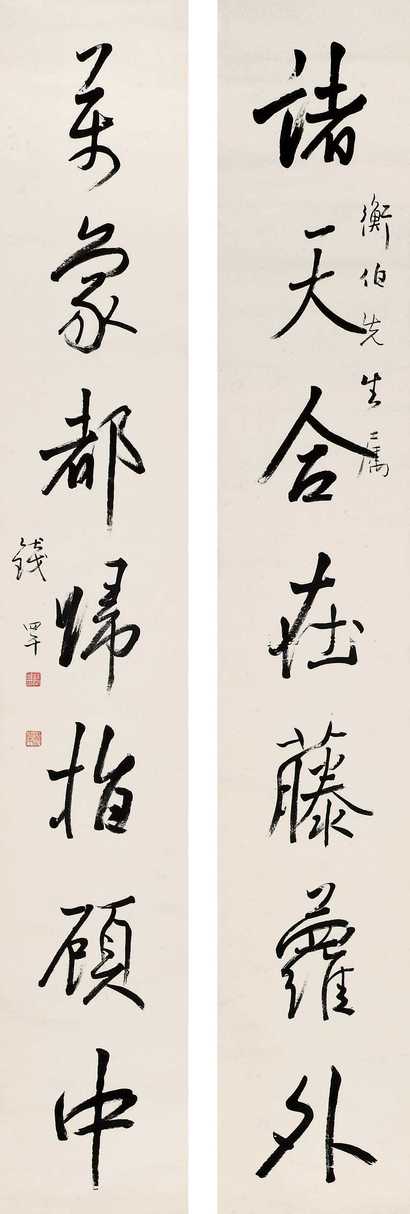 衡伯先生屬
諸天合在藤蘿外
萬象都歸指顧中
錢罕